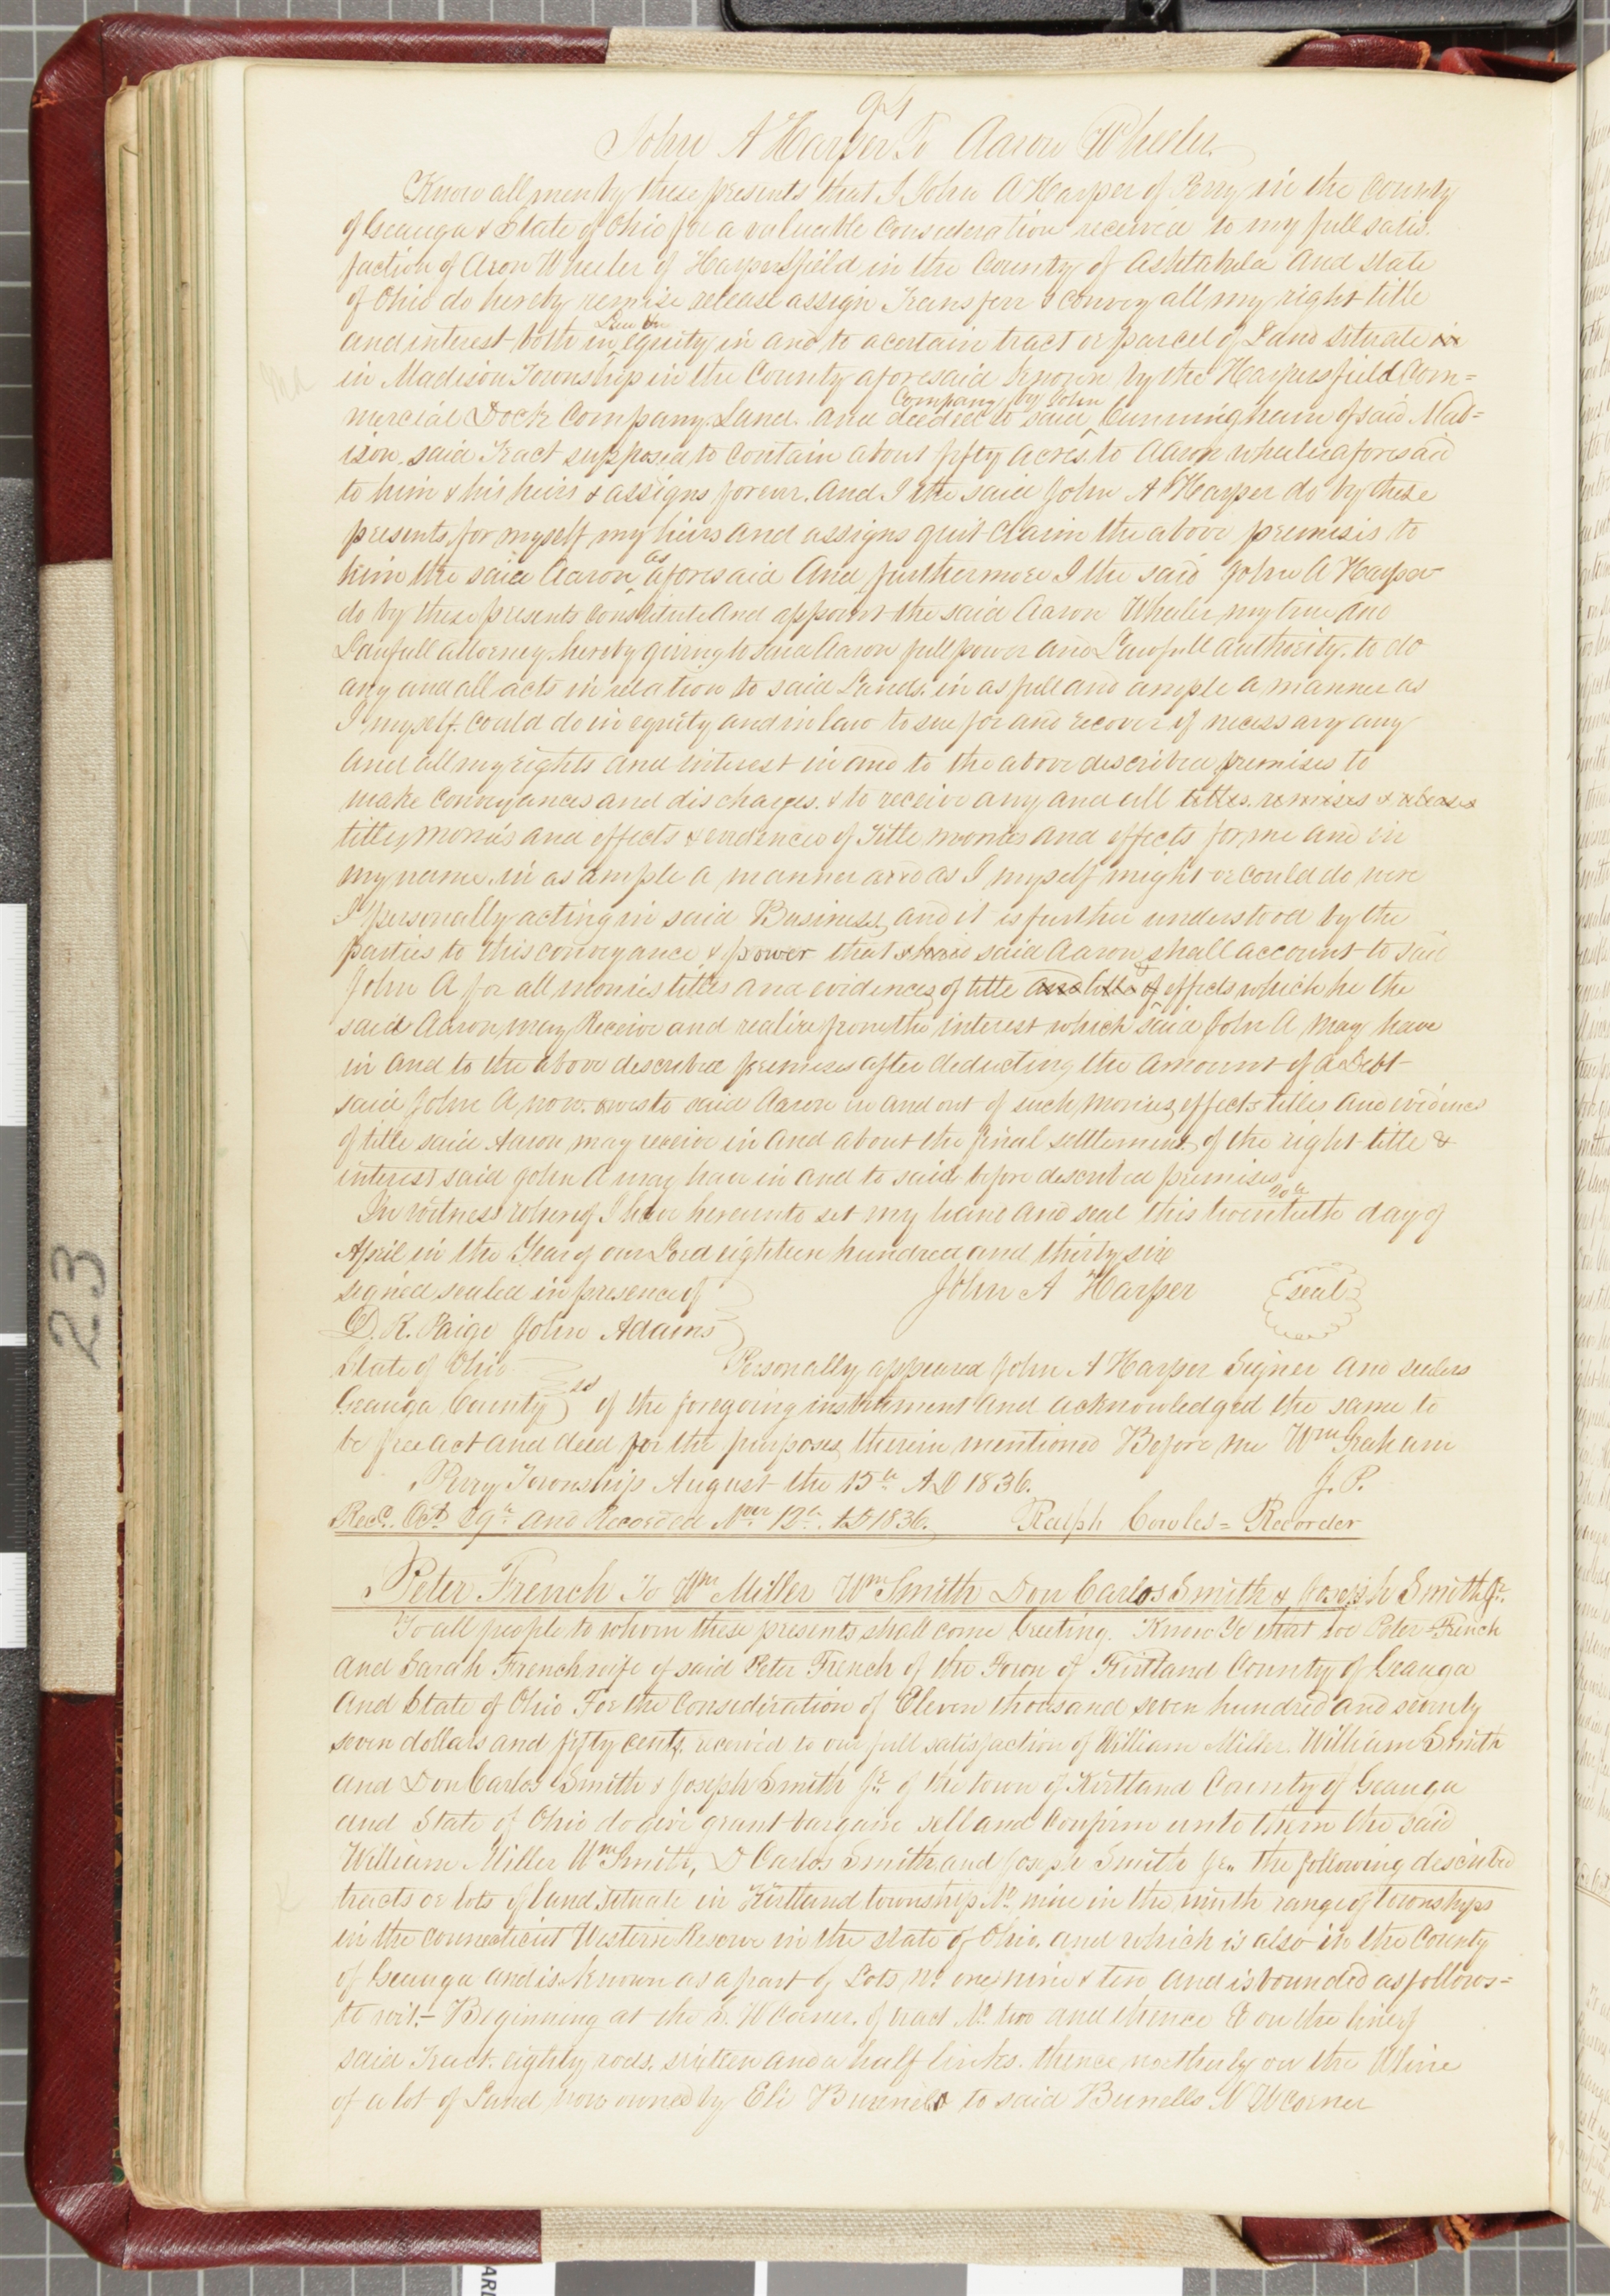 94
John A Harper To Aaron Wheeler.
Know all men by these presents that I John A Harper of Perry in the County
of Geauga & State of Ohio for a valuable Consideration received to my full satis.
faction of Aron Wheeler of Harpersfield in the County of Ashtabula And State
of Ohio do hereby remise release assign Transferr & convey all my right title
Law &in
and interest both in equity in and to a certain tract or parcel of Land situate in
in Madison Township in the County aforesaid Known by the Harpersfield Com=
Company by John
mercial Dock Company Land. and deeded to said Cunningham of said Mad=
ison. said Tract supposed to contain about fifty acres to Aaron wheeler aforesaid
to him & his heirs & assigns forever. And I the said John A Harper do by these
presents, for myself my heirs and assigns quit-claim the above premisis to
as
him the said Aaron aforesaid And furthermore I the said John A Harper
do by these presents constitute and appoint the said Aaron Wheeler my true and
Lawfull attorney hereby giving to said Aaron full power and Lawfull authority. to do
any and all acts in relation to said Lands. in as full and ample a manner as
I myself. could do in equity and in law to sue for and recover if necessary any
and all my rights and interest in and to the above described premises to
make conveyances and discharges. & to receive any and all titles. remises & releases
titles monies and effects & evidences of Title monies and effects for me and in
my name. in as ample a manner as I myself might or could do were
I personally acting in said Business, and it is further understood by the
parties to this conveyance & power that said Aaron shall account to said
John A for all monies titles and evidences of title and title of effects which he the
said Aaron may Receive and realize from the interest which said John A may have
in and to the above described premises after deducting the amount of a Debt
said John A now. owes to said Aaron in and out of such monies, effects titles and evidences
of title said Aaron may receive in and about the final settlement, of the right title &
interest said John A may have in and to said before described premises
20th
In witness whereof I have hereunto set my hand and seal this twentieth day of
April in the Year of our Lord eighteen hundred and thirty six
signed sealed in presence of John A Harper seal
D. R. Paige John Adams
State of Ohio Personally appeared John A Harper Signer and sealers
Geauga County ss of the foregoing instrument and acknowledged the same to
be free act and deed for the purposes, therein mentioned Before me Wm Graham
Perry Township August the 15th AD 1836. J. P.
Recd. Oct 29th and Recorded Nov 12th AD 1836. Ralph Cowles = Recorder
Peter French To Wm Miller Wm Smith Don Carlos Smith & Joseph Smith Jr.
To all people to whom these presents shall come Greeting. Know Ye that we Peter French
And Sarah French wife of said Peter French of the Town of Kirtland County of Geauga
And State of Ohio For the Consideration of Eleven thousand seven hundred and seventy
seven dollars and fifty cents, received to our full satisfaction of William Miller. William Smith
and Don Carlos Smith & Joseph Smith Jr. of the town of Kirtland County of Geauga
and State of Ohio do give grant bargain sell and Confirm unto them the said
William Miller Wm Smith, D Carlos Smith and Joseph Smith Jr. the following described
tracts or lots of land situate in Kirtland township No nine in the ninth range of townships
in the connecticut Western Reserve in the state of Ohio. and which is also in the County
of Geauga and is known as a part of Lots No one nine & ten and is bounded as follows=
to wit.— Beginning at the S. W Corner. of tract No two and thence E on the line of
said Tract. eighty rods. sixteen and a half links. thence, northerly on the W line
of a lot of Land now owned by Eli Bunnels to said Bunells N W corner
23